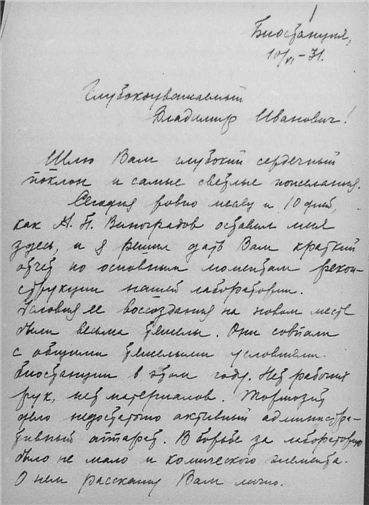 Биостанция,
10/VI-31.
Глубокоуважаемый
Владимир Иванович!
Шлю Вам глубокий сердечный
поклон и самые светлые пожелания.
Сегодня ровно месяц и 10 дней
как А. П. Виноградов оставил меня
здесь, и я решил дать Вам краткий
отчет по основным моментам рекон-
струкции нашей лаборатории.
Условия ее воссоздания на новом месте
были весьма тяжелы. Они совпали
с общими тяжелыми условиями
биостанции в этом году. Нет рабочих
рук, нет материалов. Тормозит
дело недостаточно активный администра-
тивный аппарат. В борьбе за лабораторию
было не мало и комического элемента.
О нем расскажу Вам лично.